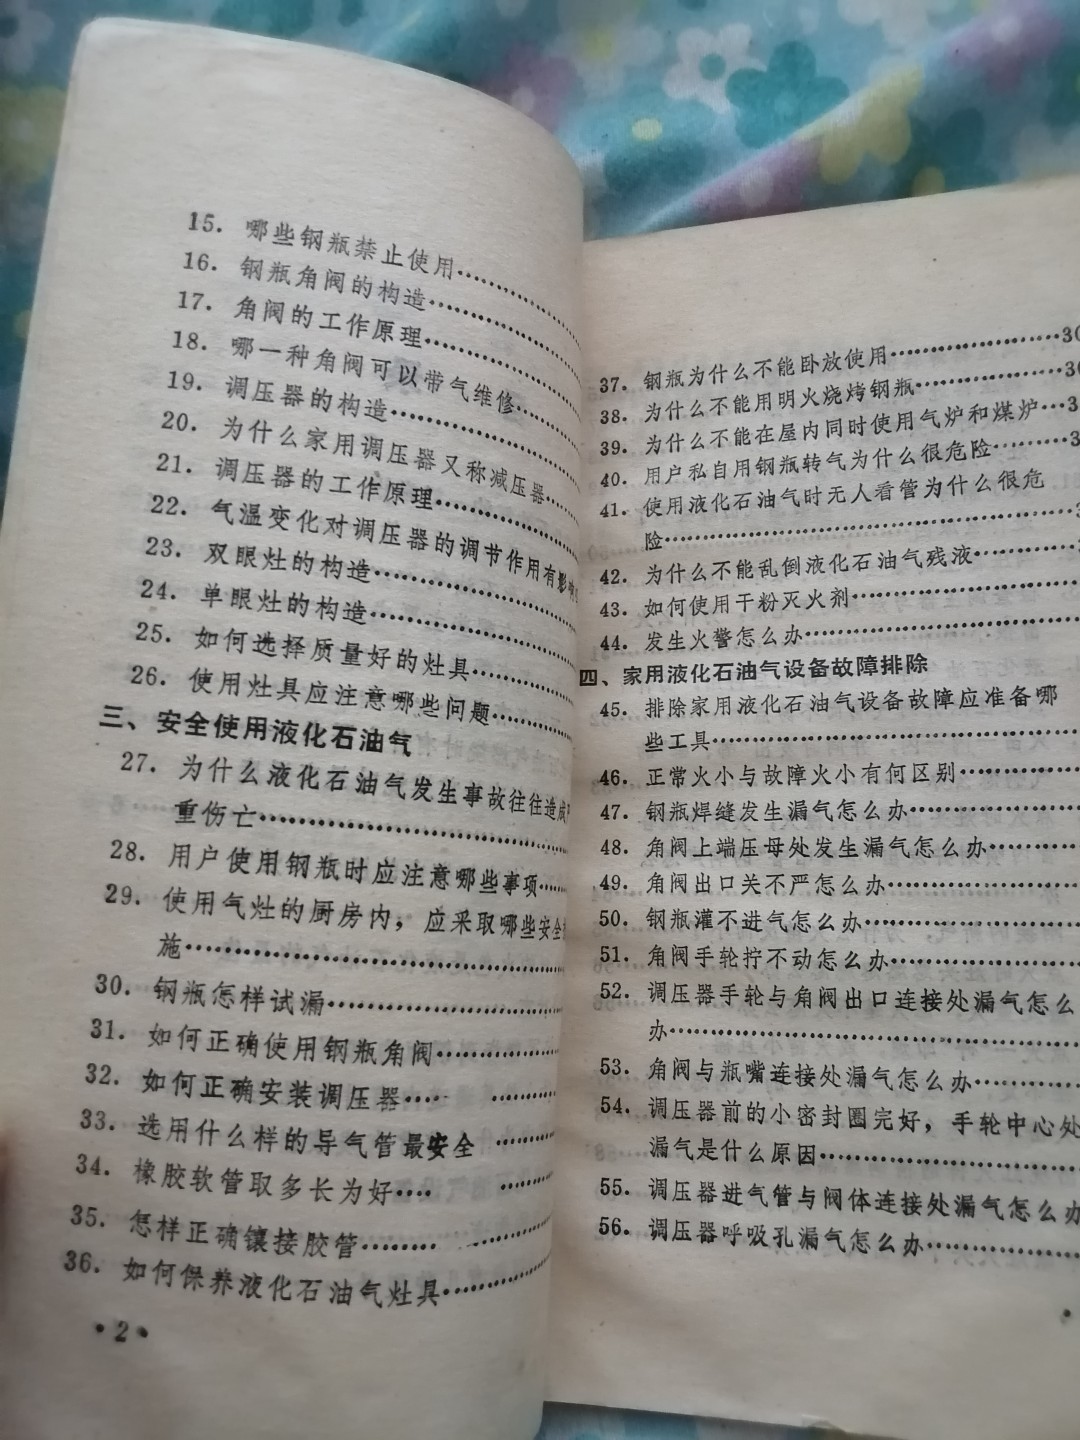 15. 哪些钢瓶禁止使用……
16. 钢瓶角阀的构造……
17. 角阀的工作原理……
18. 哪一种角阀可以带气维修……
19. 调压器的构造……
20. 为什么家用调压器又称减压器……
21. 调压器的工作原理……
22. 气温变化对调压器的调节作用有影响
23. 双眼灶的构造……
24. 单眼灶的构造……
25. 如何选择质量好的灶具……
26. 使用灶具应注意哪些问题……
三、安全使用液化石油气
27. 为什么液化石油气发生事故往往造成
重伤亡……
28. 用户使用钢瓶时应注意哪些事项……
29. 使用气灶的厨房内，应采取哪些安全
施……
30. 钢瓶怎样试漏……
31. 如何正确使用钢瓶角阀……
32. 如何正确安装调压器……
33. 选用什么样的导气管最安全……
34. 橡胶软管取多长为好……
35. 怎样正确镶接胶管……
36. 如何保养液化石油气灶具……
•2•
37. 钢瓶为什么不能卧放使用……30
38. 为什么不能用明火烧烤钢瓶……30
39. 为什么不能在屋内同时使用气炉和煤炉…3
40. 用户私自用钢瓶转气为什么很危险……3
41. 使用液化石油气时无人看管为什么很危
险……3
42. 为什么不能乱倒液化石油气残液……
43. 如何使用干粉灭火剂……
44. 发生火警怎么办……
四、家用液化石油气设备故障排除
45. 排除家用液化石油气设备故障应准备哪
些工具……
46. 正常火小与故障火小有何区别……
47. 钢瓶焊缝发生漏气怎么办……
48. 角阀上端压母处发生漏气怎么办……
49. 角阀出口关不严怎么办……
50. 钢瓶灌不进气怎么办……
51. 角阀手轮拧不动怎么办……
52. 调压器手轮与角阀出口连接处漏气怎么
办……
53. 角阀与瓶嘴连接处漏气怎么办……
54. 调压器前的小密封圈完好，手轮中心处
漏气是什么原因……
55. 调压器进气管与阀体连接处漏气怎么办
56. 调压器呼吸孔漏气怎么办……